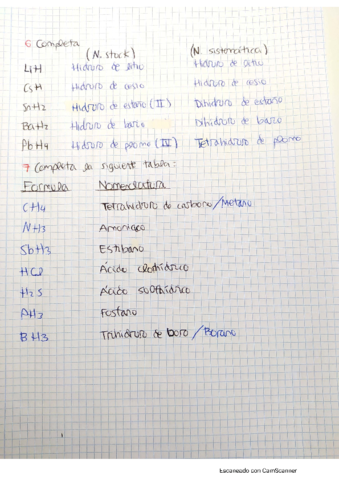 6 Completa
(N. stock) (N. sistemática)
LiH Hidruro de litio Hidruro de litio
CsH Hidruro de cesio Hidruro de cesio
SnH2 Hidruro de estaño (II) Dihidruro de estaño
BaH2 Hidruro de bario Dihidruro de bario
PbH4 Hidruro de plomo (IV) Tetrahidruro de plomo
7 Completa la siguiente tabla:
Formula Nomenclatura
CH4 Tetrahidruro de carbono/Metano
NH3 Amoniaco
SbH3 Estibano
HCl Ácido clorhídrico
H2S Ácido sulfhídrico
PH3 Fosfano
BH3 Trihidruro de boro /Borano
Escaneado con CamScanner